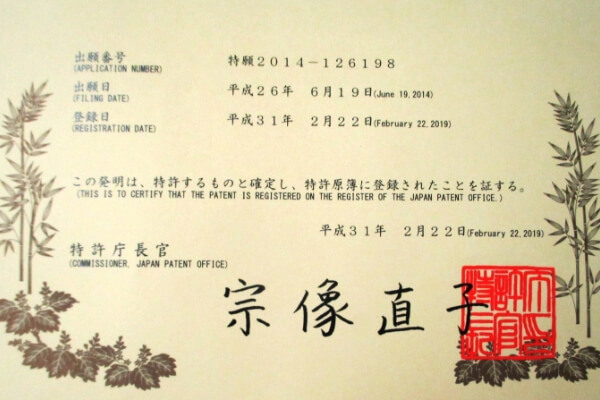 出願番号 特願2014-126198
(APPLICATION NUMBER)
出願日 平成26年 6月19日(June 19,2014)
(FILING DATE)
登録日 平成31年 2月22日(February 22,2019)
(REGISTRATION DATE)
この発明は、特許するものと確定し、特許原簿に登録されたことを証する。
(THIS IS TO CERTIFY THAT THE PATENT IS REGISTERED ON THE REGISTER OF THE JAPAN PATENT OFFICE.)
平成31年 2月22日(February 22,2019)
特許庁長官
(COMMISSIONER, JAPAN PATENT OFFICE)
宗像直子